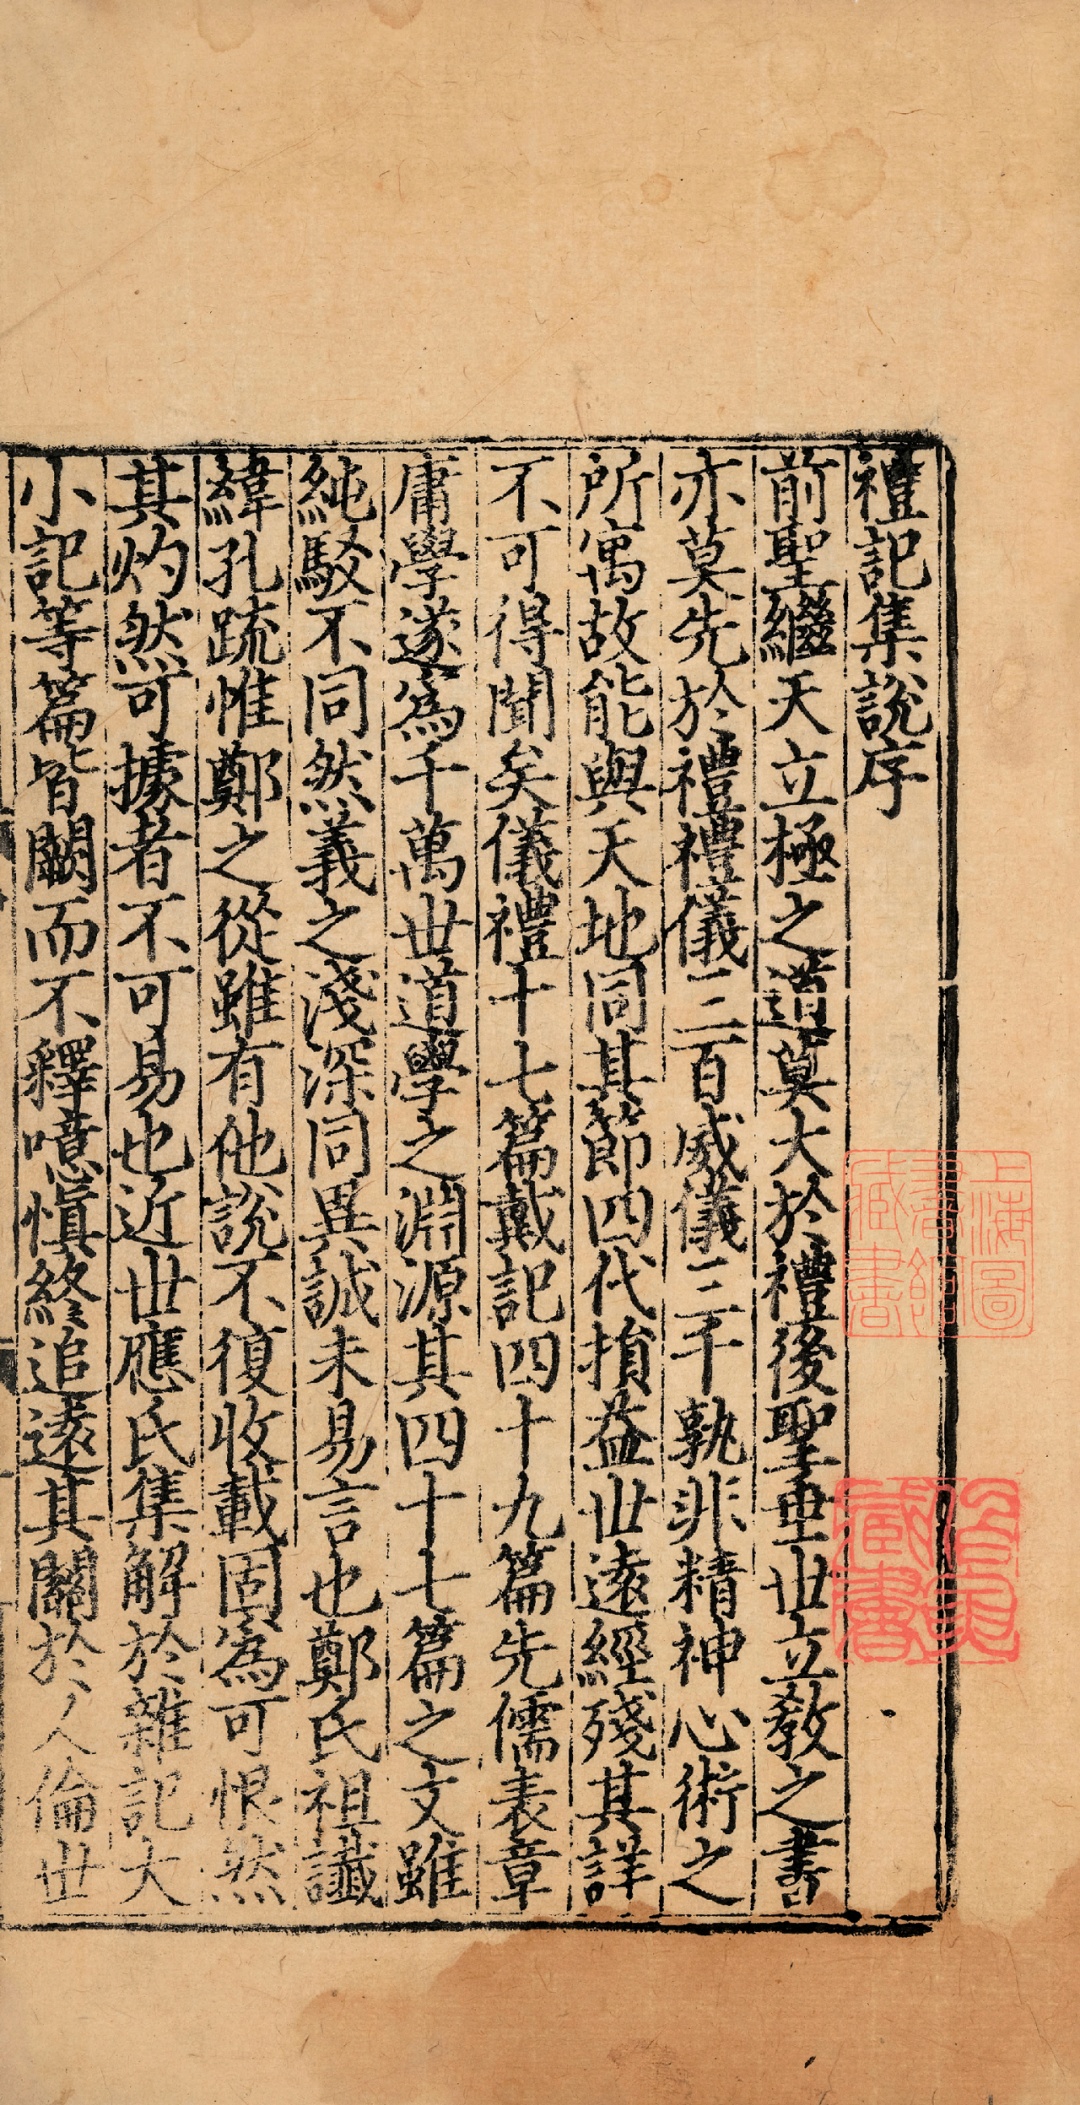 禮記集說序
前聖繼天立極之道莫大於禮後聖垂世立敎之書
亦莫先於禮禮儀三百威儀三千孰非精神心術之
所寓故能與天地同其節四代損益世遠經殘其詳
不可得聞矣儀禮十七篇戴記四十九篇先儒表章
庸學遂爲千萬世道學之淵源其四十七篇之文雖
純駁不同然義之淺深同異誠未易言也鄭氏祖讖
緯孔疏惟鄭之從雖有他說不復收載固爲可恨然
其灼然可據者不可易也近世應氏集解於雜記大
小記等篇皆闕而不釋噫愼終追遠其關於人倫世
上海圖書館藏書